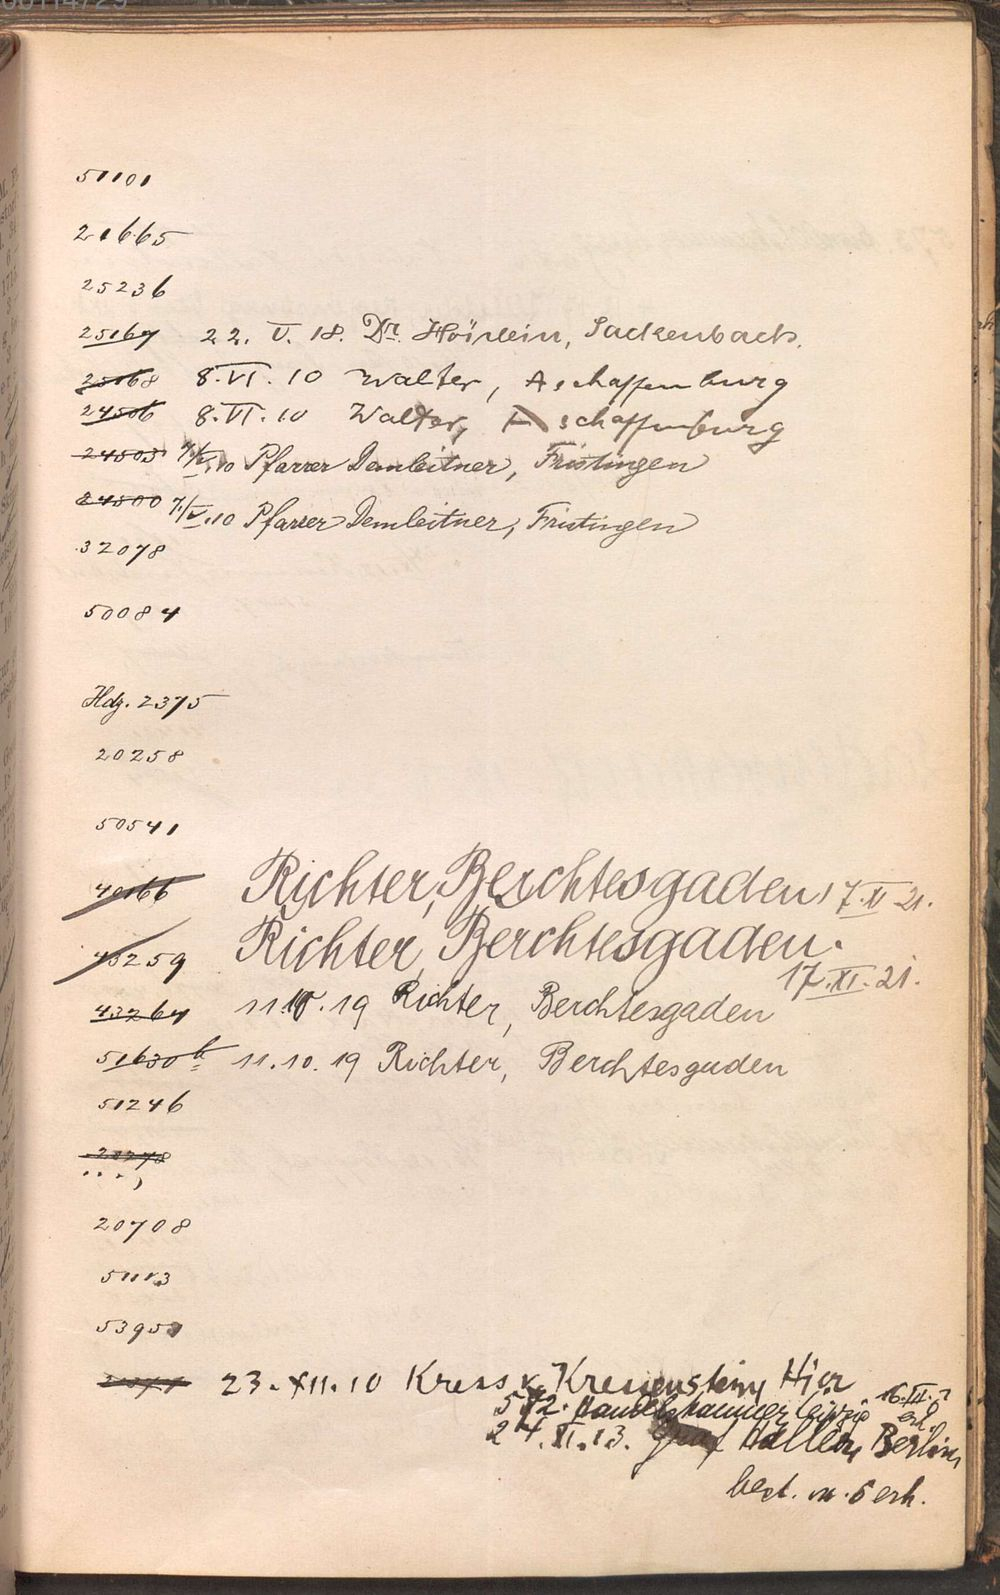 51101
21665
25236
25167 22. V. 18. Dr. Hörlein, Sackenbach.
25168 8. VI. 10 Walter, Aschaffenburg
24506 8. VI. 10 Walter, Aschaffenburg
24503 7/V. 10 Pfarrer Demleitner, Fristingen
24500 7/V. 10 Pfarrer Demleitner, Fristingen
32078
50084
Hdz. 2375
20258
50541
40166 Richter, Berchtesgaden 17. XI 21.
45259 Richter, Berchtesgaden.
17. XI. 21.
43264 11.10.19 Richter, Berchtesgaden
51630 b 11.10.19 Richter, Berchtesgaden
51246
20278
20708
51113
5395
23. XII. 10 Kress v. Kressenstein, Hier
Handelskammer Leipzig 16. III.
erh.
24. XI. 13. Graf Haller, Berlin,
best. u. erh.